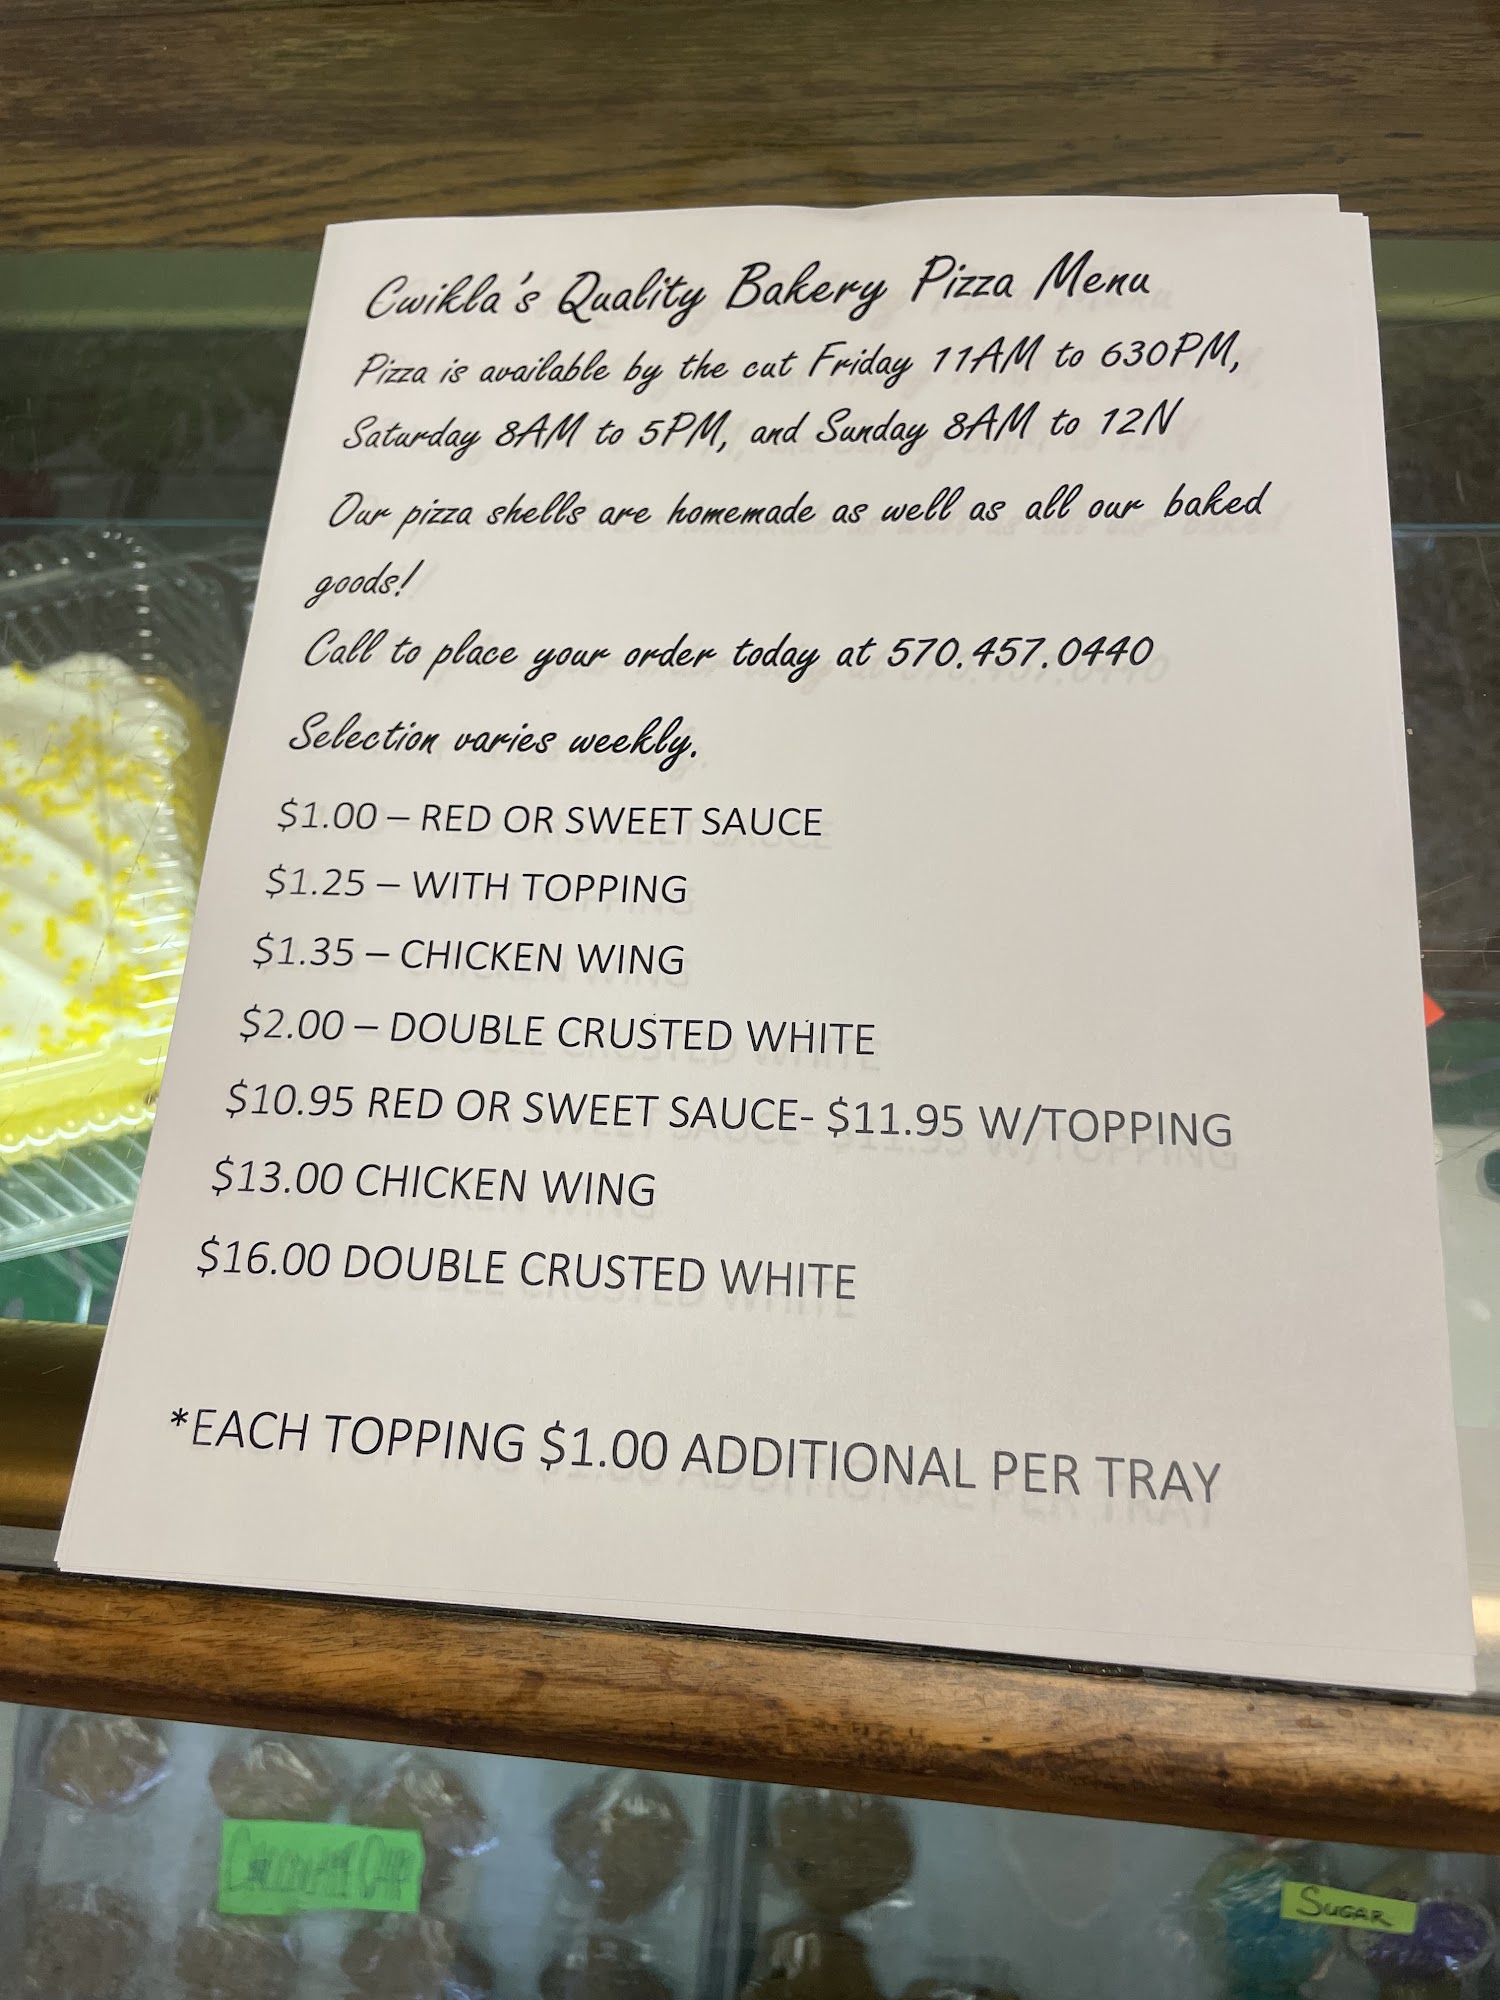 Cwikla's Quality Bakery Pizza Menu
Pizza is available by the cut Friday 11AM to 630PM,
Saturday 8AM to 5PM, and Sunday 8AM to 12N
Our pizza shells are homemade as well as all our baked
goods!
Call to place your order today at 570.457.0440
Selection varies weekly.
$1.00 – RED OR SWEET SAUCE
$1.25 – WITH TOPPING
$1.35 – CHICKEN WING
$2.00 – DOUBLE CRUSTED WHITE
$10.95 RED OR SWEET SAUCE- $11.95 W/TOPPING
$13.00 CHICKEN WING
$16.00 DOUBLE CRUSTED WHITE
*EACH TOPPING $1.00 ADDITIONAL PER TRAY
CHOCOLATE CHIP
SUGAR